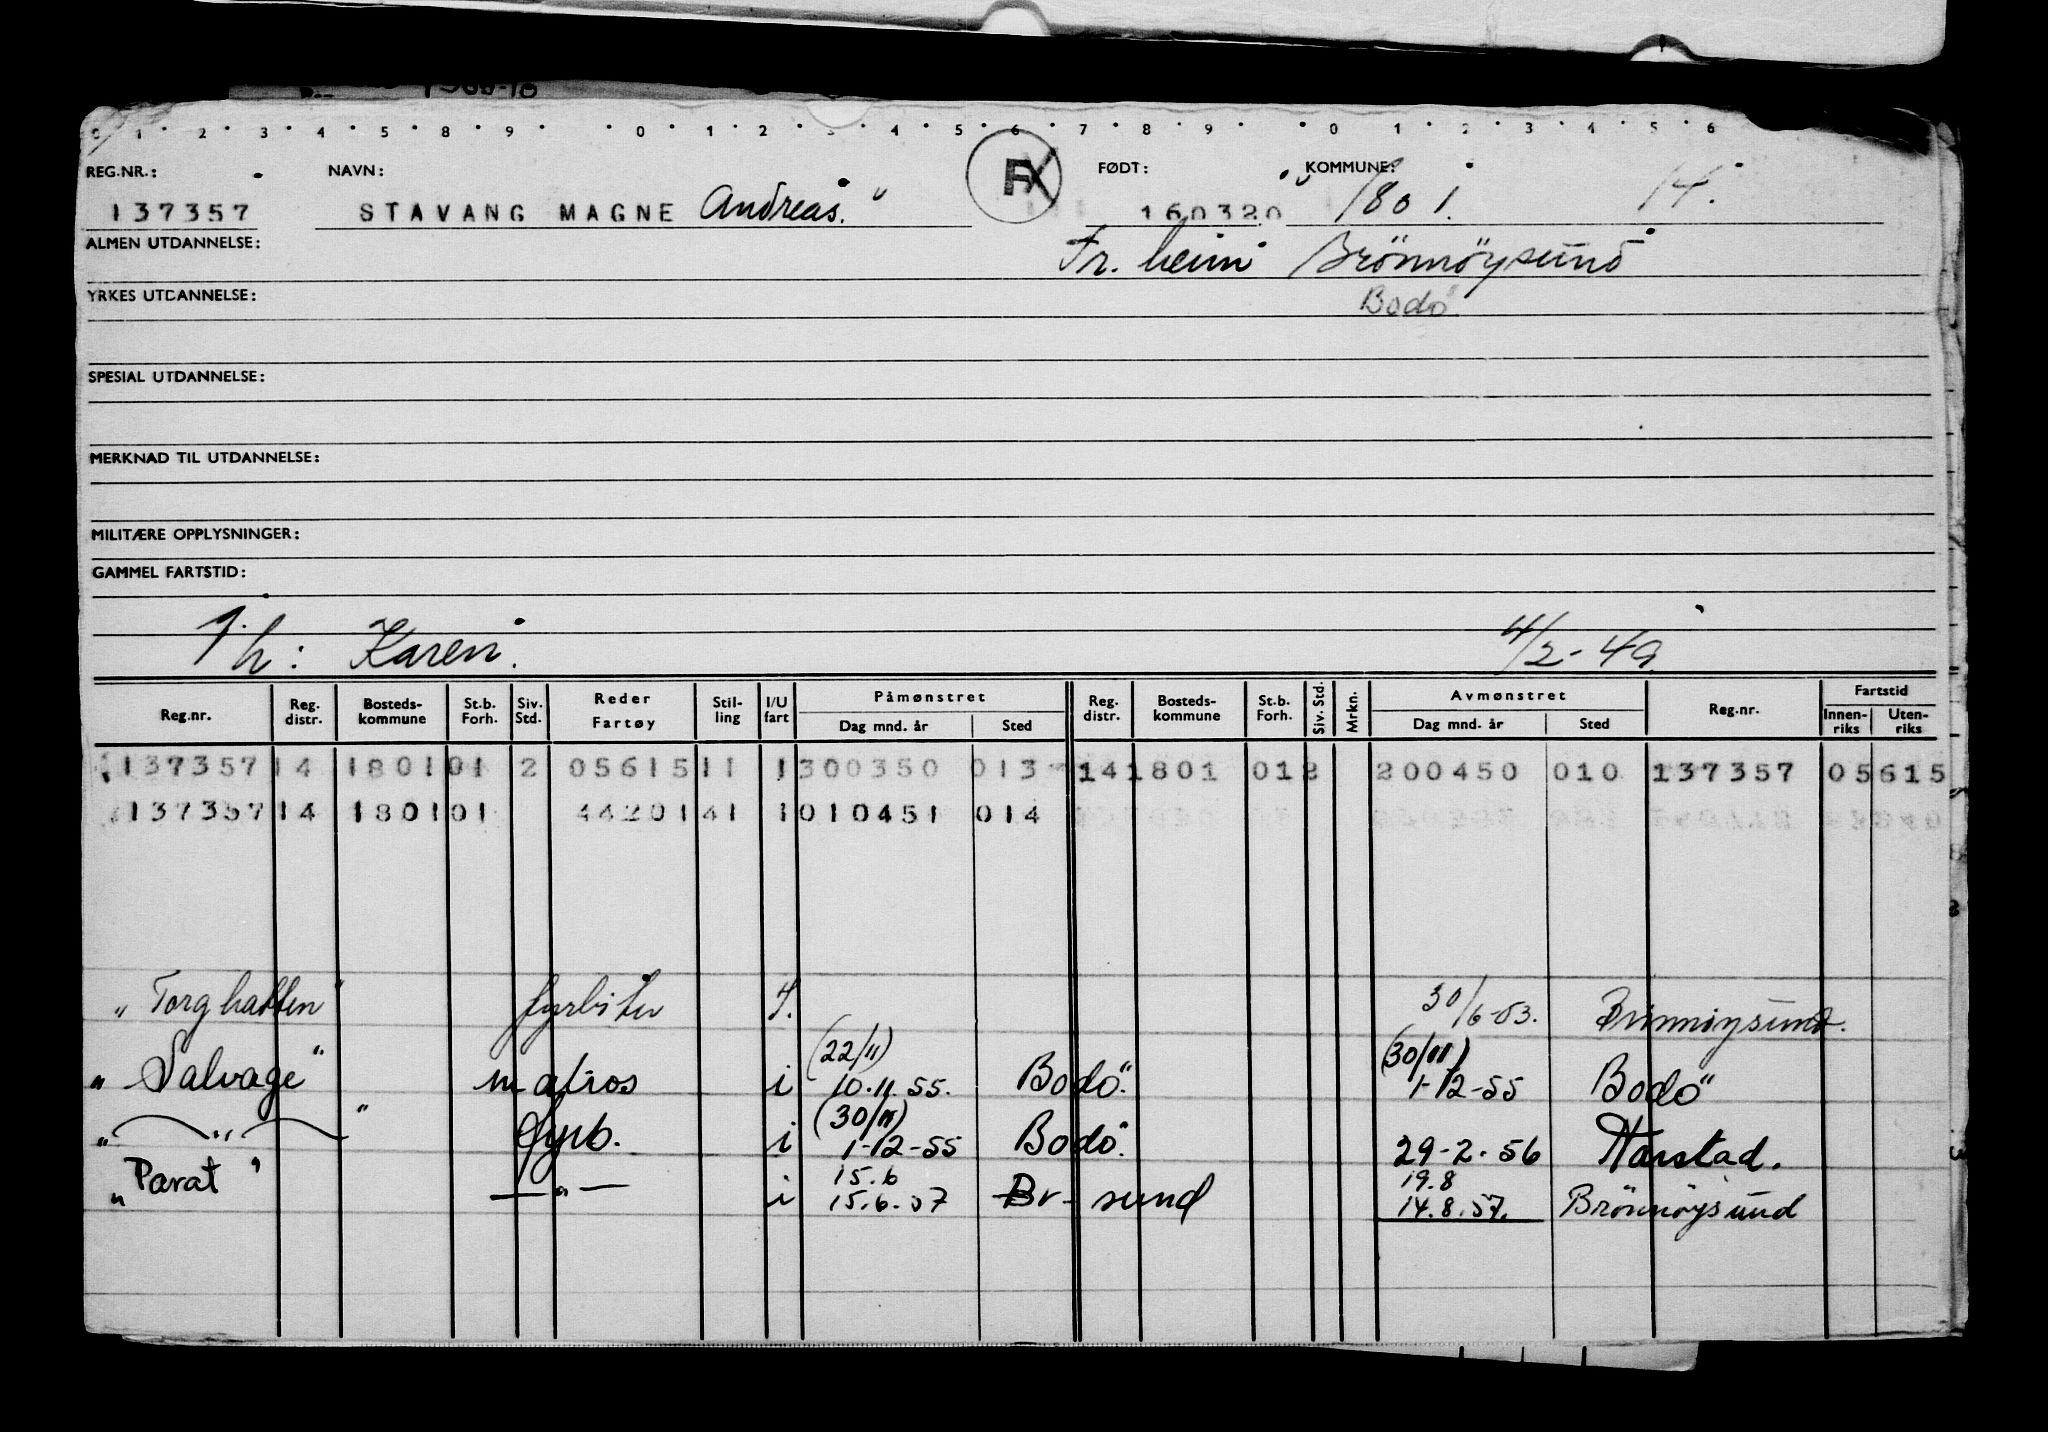 0 1 2 3 4 5 8 9 0 1 2 3 4 5 6 7 8 9 0 1 2 3 4 5 6
REG.NR.: NAVN: FØDT: KOMMUNE:
137357 STAVANG MAGNE Andreas. FX 160320 1801. 14.
ALMEN UTDANNELSE: Fr. heim Brönnöysund
YRKES UTDANNELSE: Bodö
SPESIAL UTDANNELSE:
MERKNAD TIL UTDANNELSE:
MILITÆRE OPPLYSNINGER:
GAMMEL FARTSTID:
h: Karen. 4/2-49
Reg.nr. Reg. distr. Bosteds-kommune St.b. Forh. Siv. Std. Reder Fartøy Stil-ling I/U fart Påmønstret Dag mnd. år Sted Reg. distr. Bosteds-kommune St.b. Forh. Siv. Std. Mrkn. Avmønstret Dag mnd. år Sted Reg.nr. Fartstid Innen-riks Uten-riks
137357 14 1801 01 2 05615 11 1 300350 013 14 1801 01 2 200450 010 137357 05615
137357 14 1801 01 44201 41 1 010451 014
"Torghatten" fyrbiter 30/6-53. Brönnöysund.
"Salvage" matros i (22/11) 10.11.55. Bodö. (30/11) 1-12-55 Bodö
" — " — " fyrb. i (30/11) 1-12-55 Bodö. 29-2-56 Harstad.
"Parat" — " — i 15.6 15.6.57 Br-sund 19.8 14.8.57. Brönnöysund